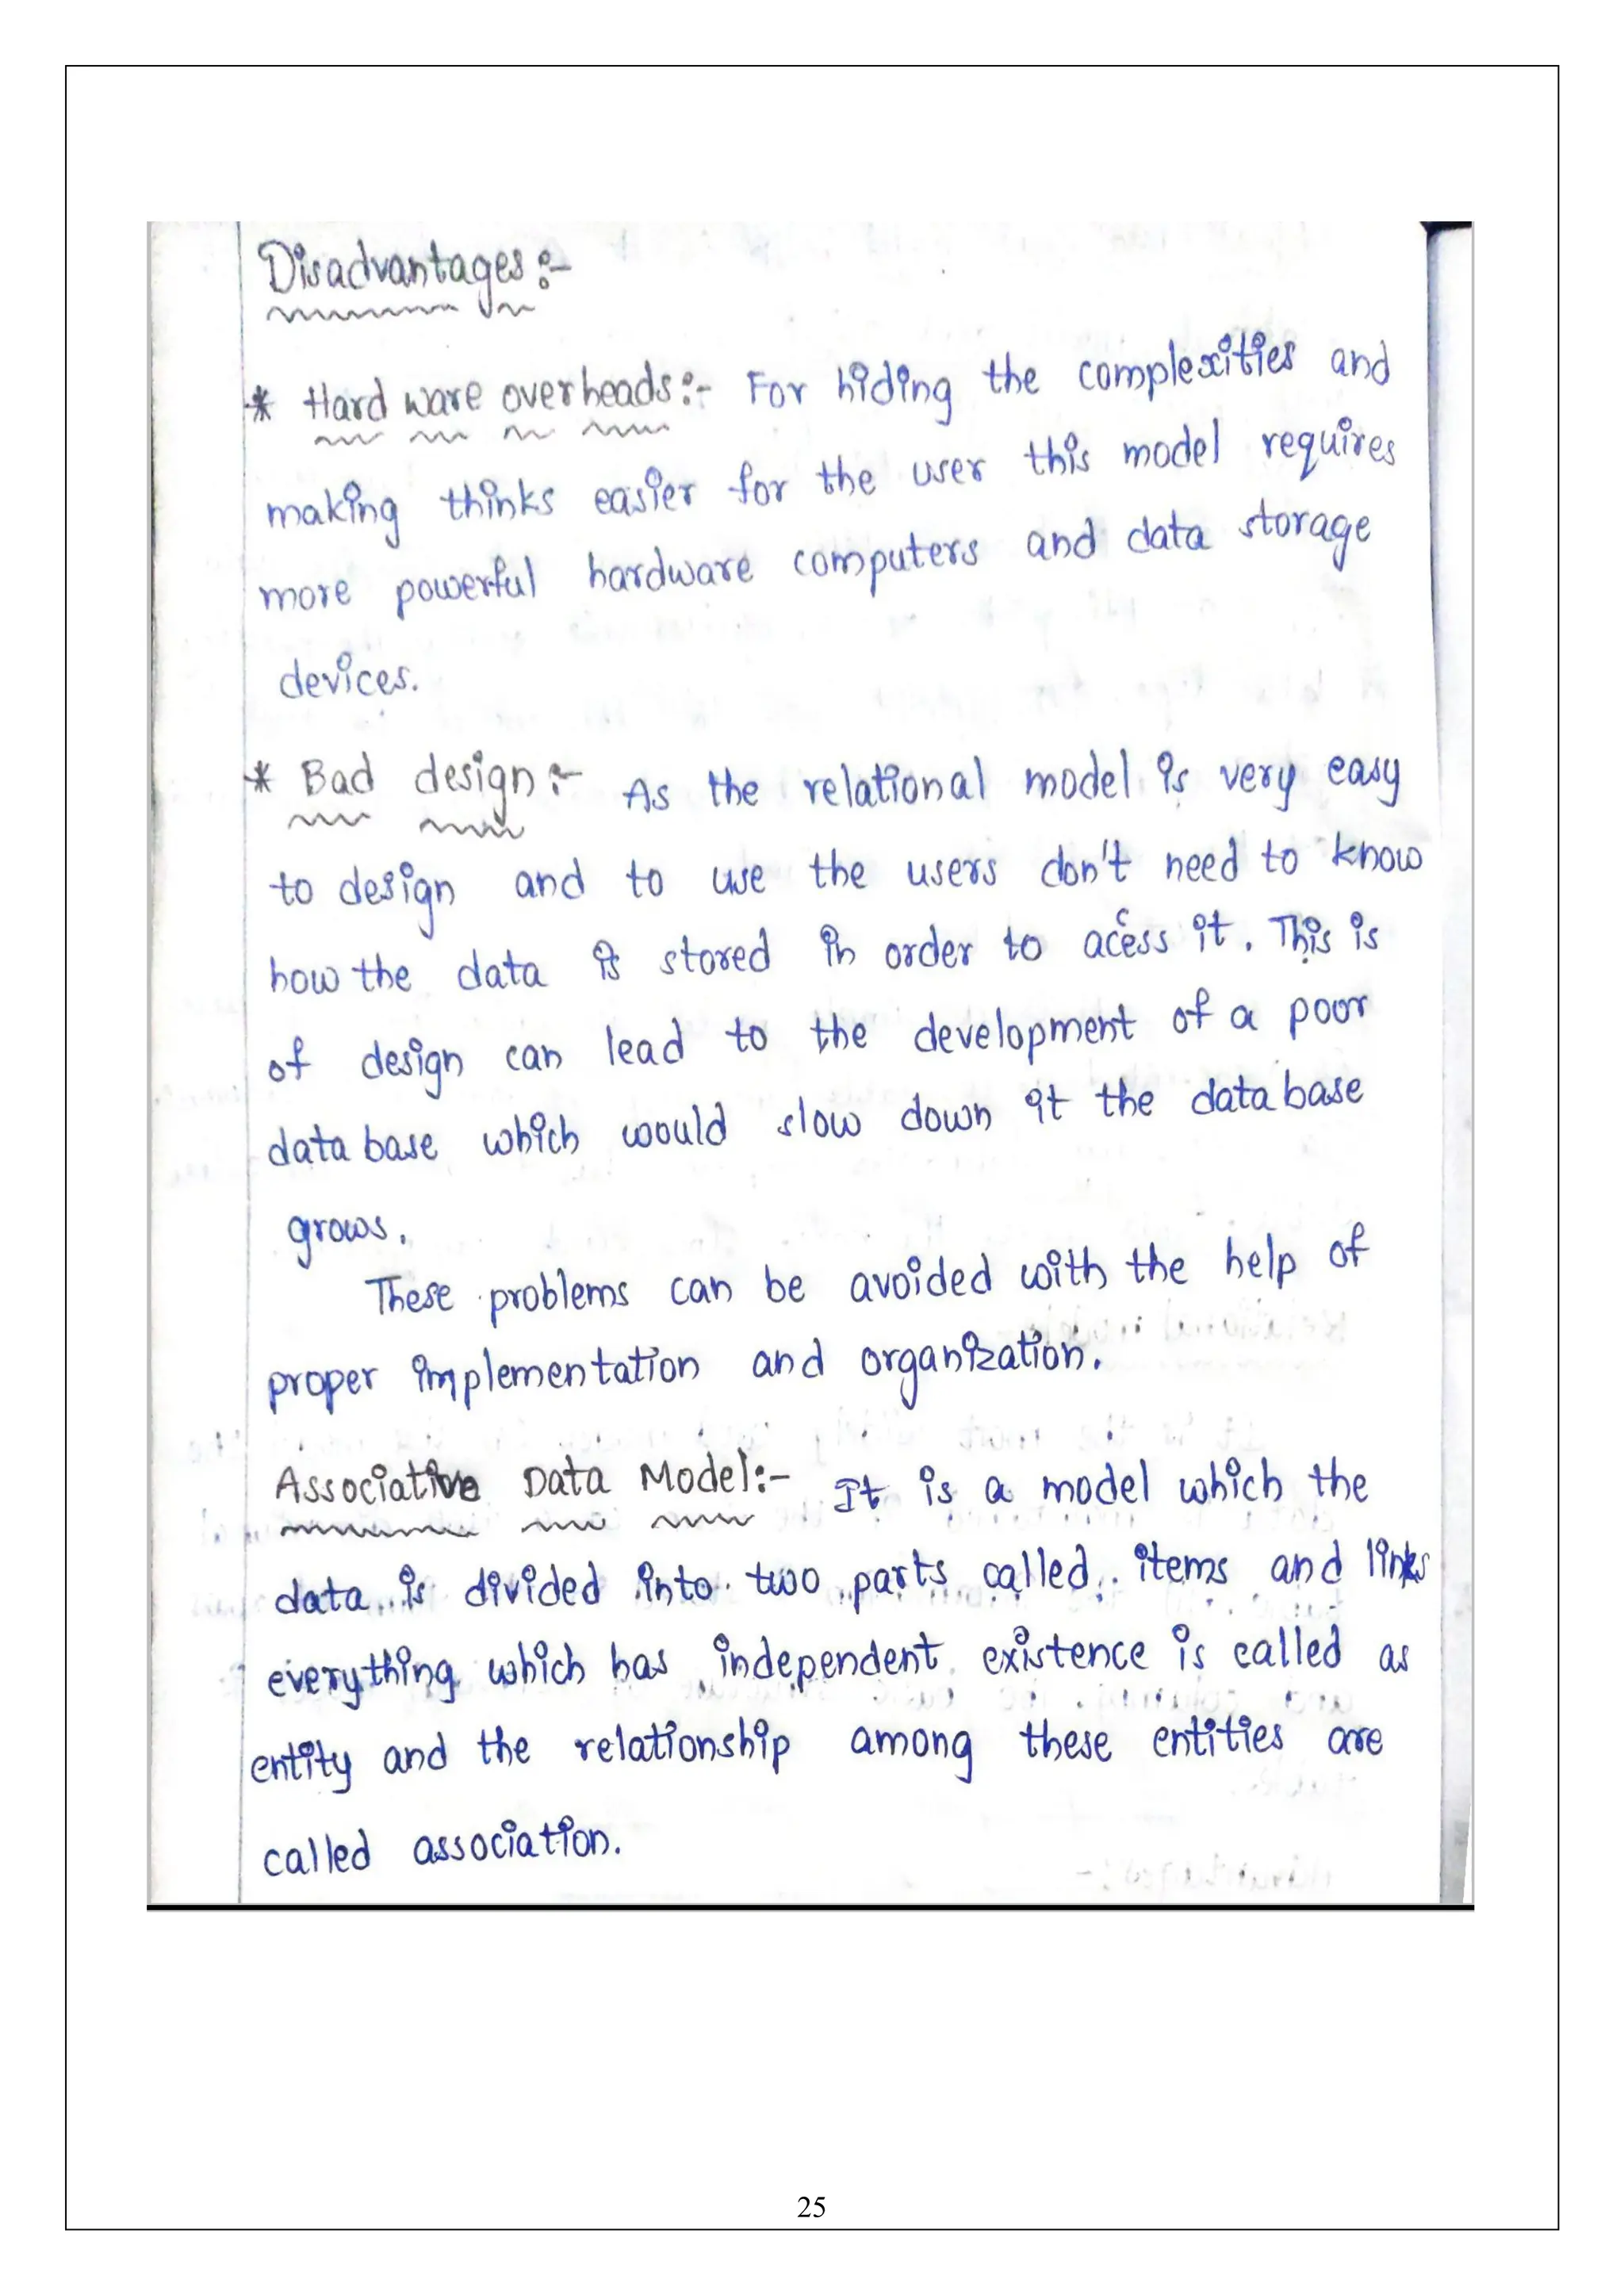 Disadvantages:-
* Hard ware over heads:- For hiding the complexities and
making thinks easier for the user this model requires
more powerful hardware computers and data storage
devices.
* Bad design:- As the relational model is very easy
to design and to use the users don't need to know
how the data is stored in order to acess it. This is
of design can lead to the development of a poor
data base which would slow down it the data base
grows.
These problems can be avoided with the help of
proper implementation and organization.
Associative Data Model:- It is a model which the
data is divided into two parts called items and links
everything which has independent existence is called as
entity and the relationship among these entities are
called association.
25